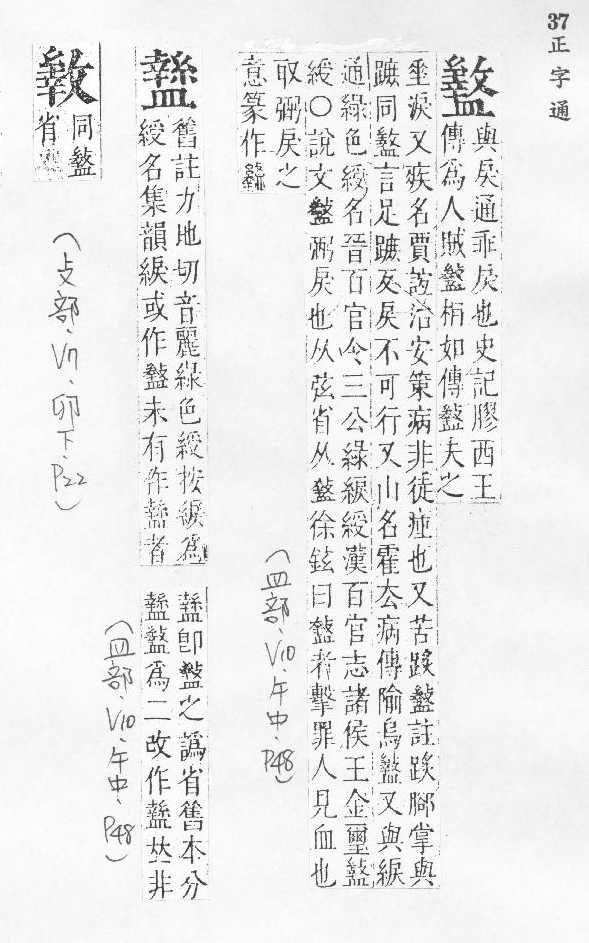 37 正字通
盭
與戾通乖戾也史記膠西王
傳爲人賊盭枏如傳盭夫之
垂淚又疾名賈誼治安策病非徒瘇也又苦蹊盭註蹊腳掌與
蹠同盭言足蹠反戾不可行又山名霍去病傳隃烏盭又與綟
通綠色綬名晉百官令三公綠綟綬漢百官志諸侯王金璽盭
綬○說文盭弼戾也从弦省从盩徐鉉曰盩者擊罪人見血也
取弼戾之
意篆作
(皿部、V10、午中、P48)
舊註力地切音麗綠色綬按綟爲
綬名集韻綟或作盭未有作者
卽盭之譌省舊本分
盭爲二改作𠀤非
(皿部、V10、午中、P48)
同盭
省
(攴部、V7、卯下、P22)